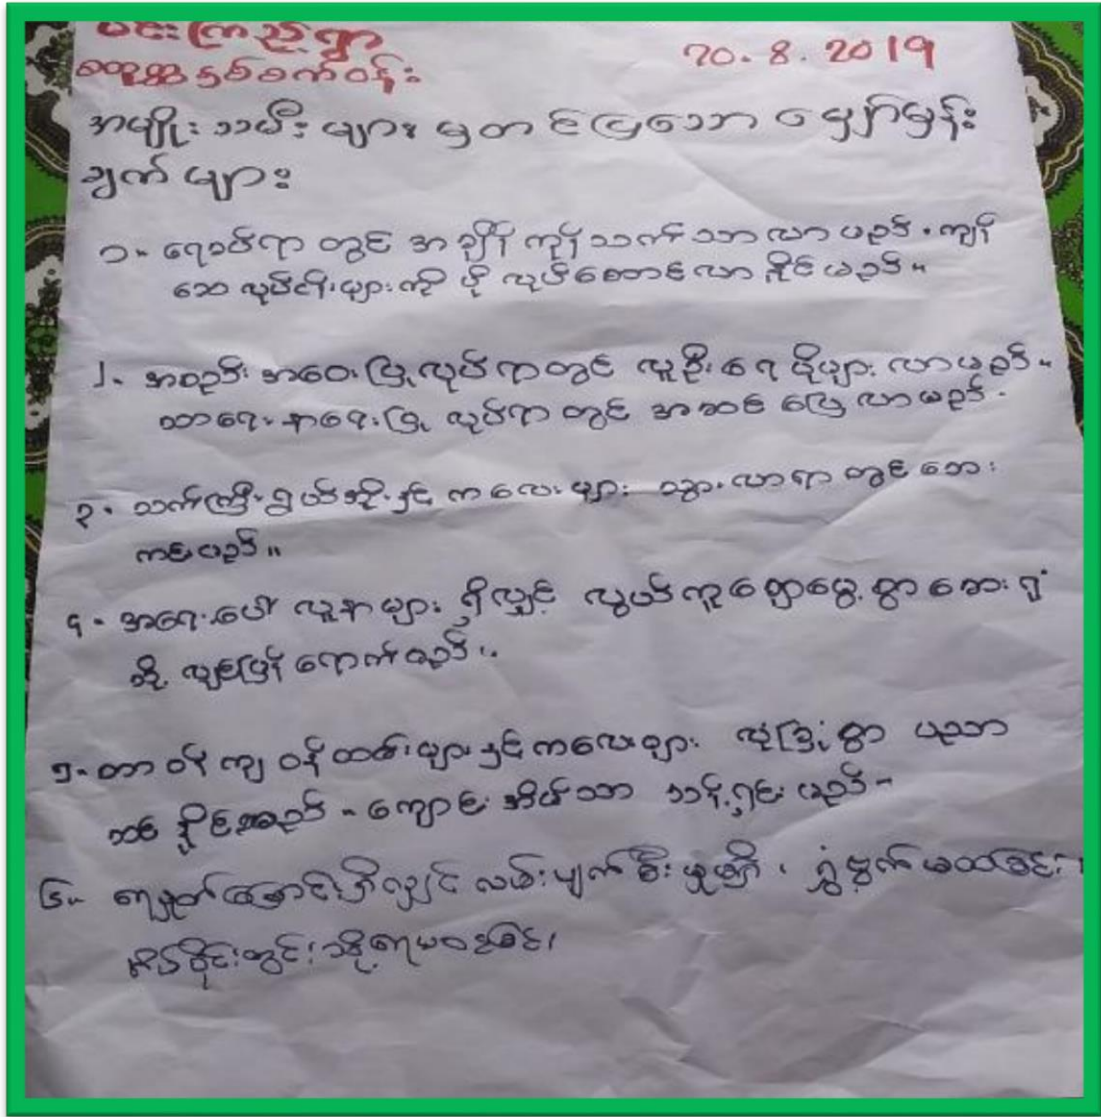 မင်းကြည့်ရွာ
စတုတ္ထနှစ်စက်ဝန်း 20.8.2019
အမျိုးသမီးများမှတင်ပြသောမျှော်မှန်း
ချက်များ
၁- ရေခပ်ရာတွင် အချိန်ကုန်သက်သာလာမည်။ ကျန်
သောလုပ်ငန်းများကို ပိုလုပ်ဆောင်လာနိုင်မည်။
၂- အစည်းအဝေးပြုလုပ်ရာတွင် လူဦးရေပိုများလာမည်။
သာရေးနာရေးပြုလုပ်ရာတွင် အဆင်ပြေလာမည်။
၃- သက်ကြီးရွယ်အိုးနှင့် ကလေးများ သွားလာရာတွင်ဘေး
ကင်းမည်။
၄- အရေးပေါ် လူနာများရှိလျှင် လွယ်ကူချောမွေ့စွာဆေးရုံ
သို့ လျင်မြန်ရောက်မည်။
၅- တာဝန်ကျဝန်ထမ်းများနှင့်ကလေးများ လုံခြုံစွာ ပညာ
သင်နိုင်မည်။ ကျောင်းအိမ်သာ သန့်ရှင်းမည်။
၆- ရေနုတ်မြောင်းရှိလျှင် လမ်းပျက်စီးမှုမရှိ၊ ရွှံ့ဗွက်မထခြင်း၊
အိမ်ဝိုင်းတွင်းသို့ရေမဝင်ခြင်း၊